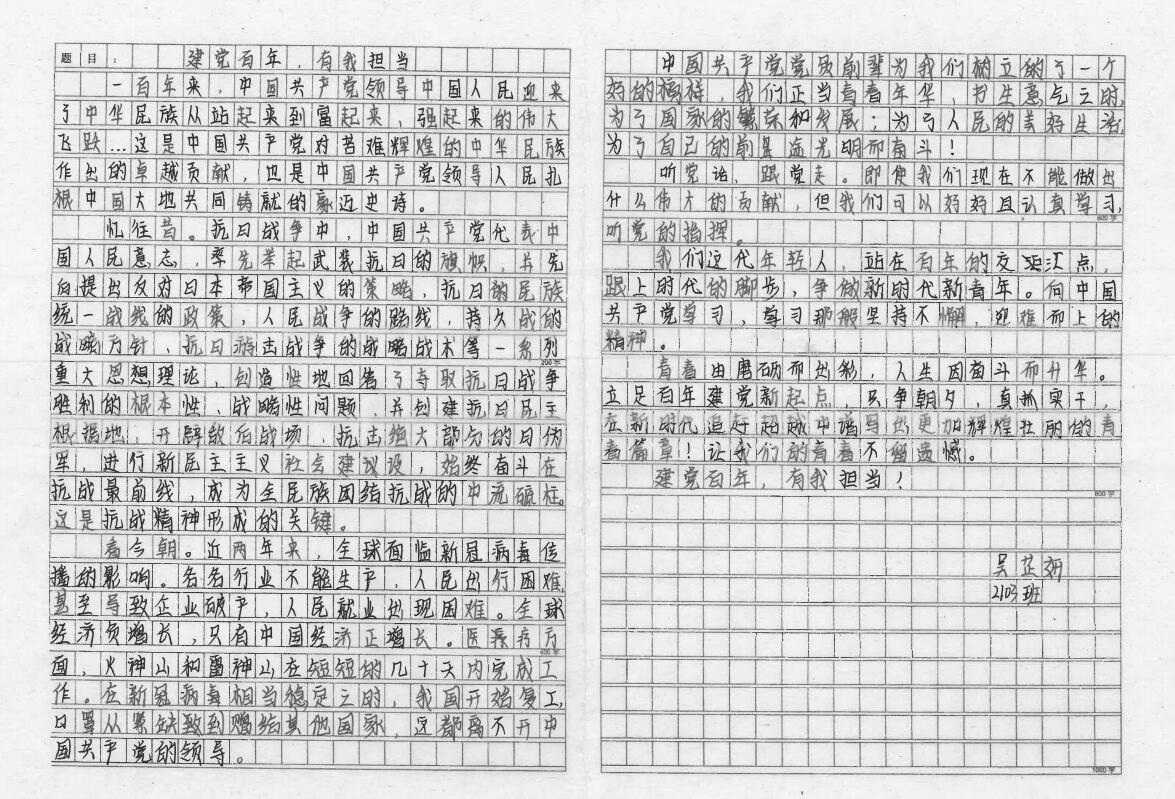 题目： 建党百年，有我担当
一百年来，中国共产党领导中国人民迎来
了中华民族从站起来到富起来，强起来的伟大
飞跃…这是中国共产党对苦难辉煌的中华民族
作出的卓越贡献，也是中国共产党领导人民扎
根中国大地共同铸就的豪迈史诗。
忆往昔。抗日战争中，中国共产党代表中
国人民意志，率先举起武装抗日的旗帜，并先
后提出反对日本帝国主义的策略，抗日的民族
统一战线的政策，人民战争的路线，持久战的
战略方针、抗日游击战争的战略战术等一系列
200字
重大思想理论，创造性地回答了夺取抗日战争
胜利的根本性、战略性问题，并创建抗日民主
根据地，开辟敌后战场，抗击绝大部分的日伪
军，进行新民主主义社会建议设，始终奋斗在
抗战最前线，成为全民族团结抗战的中流砥柱。
这是抗战精神形成的关键。
看今朝。近两年来，全球面临新冠病毒传
播的影响。各各行业不能生产，人民出行困难，
甚至导致企业破产，人民就业出现困难。全球
经济负增长，只有中国经济正增长。医疗方
400字
面，火神山和雷神山在短短的几十天内完成工
作。在新冠病毒相当稳定之时，我国开始复工，
口罩从紧缺致到赠给其他国家，这都离不开中
国共产党的领导。
中国共产党党员前辈为我们树立的了一个
好的榜样，我们正当青春年华，书生意气之时，
为了国家的繁荣和发展；为了人民的美好生活，
为了自己的前途光明而奋斗！
听党话，跟党走。即使我们现在不能做出
什么伟大的贡献，但我们可以好好且认真学习，
600字
听党的指挥。
我们这代年轻人，站在百年的交汇点，
跟上时代的脚步，争做新时代新青年。向中国
共产党学习，学习那般坚持不懈，迎难而上的
精神。
青春由磨砺而出彩，人生因奋斗而升华。
立足百年建党新起点，只争朝夕，真抓实干，
在新时代追赶超越中谱写出更加辉煌壮丽的青
春篇章！让我们的青春不留遗憾。
建党百年，有我担当！
800字
吴芷妍
2103班
1000字